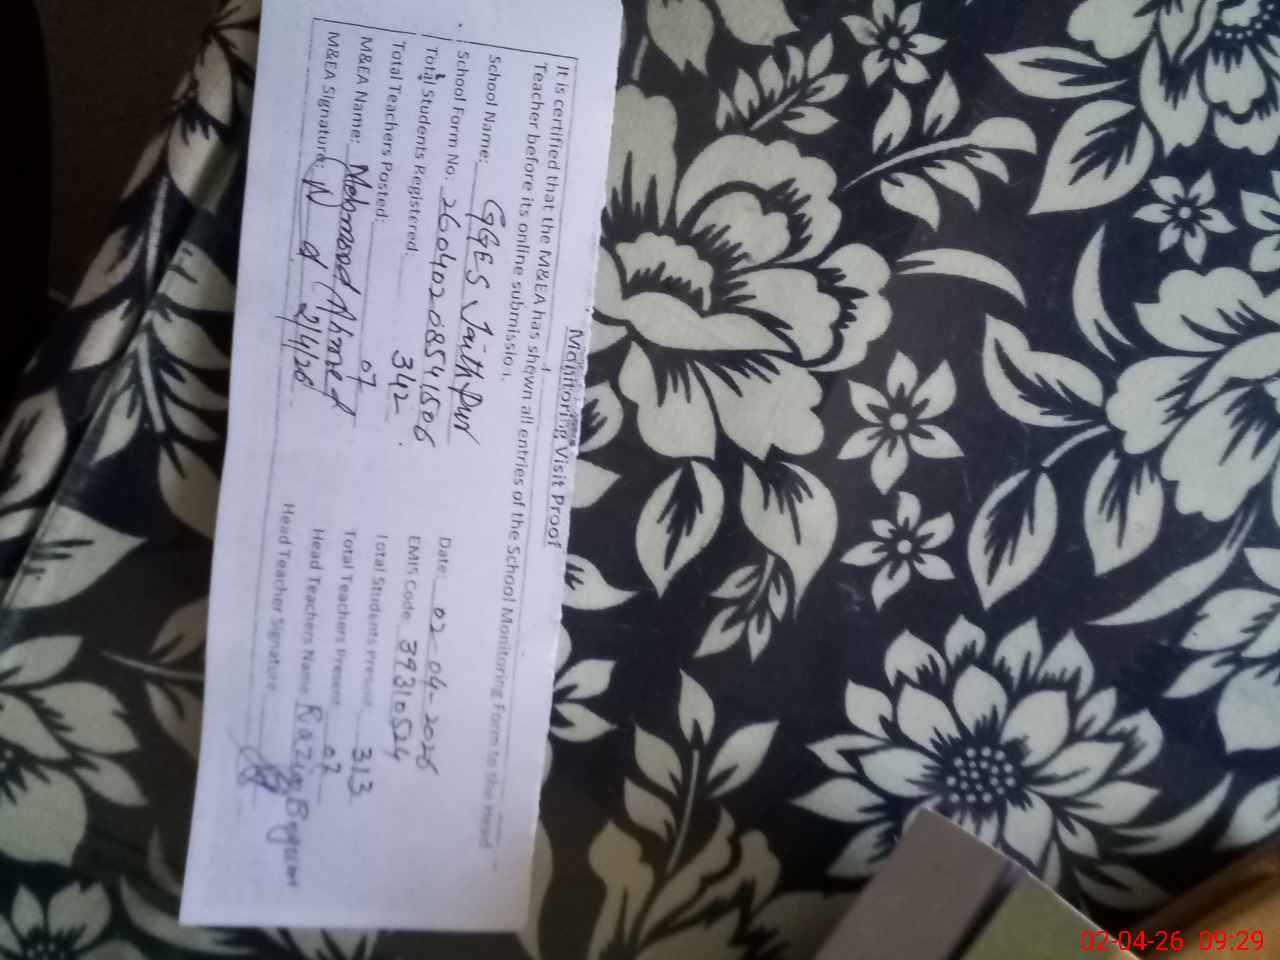 Monitoring Visit Proof
It is certified that the M&EA has shown all entries of the School Monitoring Form to the Head
Teacher before its online submission.
School Name: GGES Jaithpur Date: 02-04-2026
School Form No.: 26040208541506 EMIS Code 39310524
Total Students Registered: 342 Total Students Present 313
Total Teachers Posted: 07 Total Teachers Present 07
M&EA Name: Mahmood Ahmed Head Teachers Name Razia Begum
M&EA Signature: 2/4/26 Head Teacher Signature
02-04-26 09:29